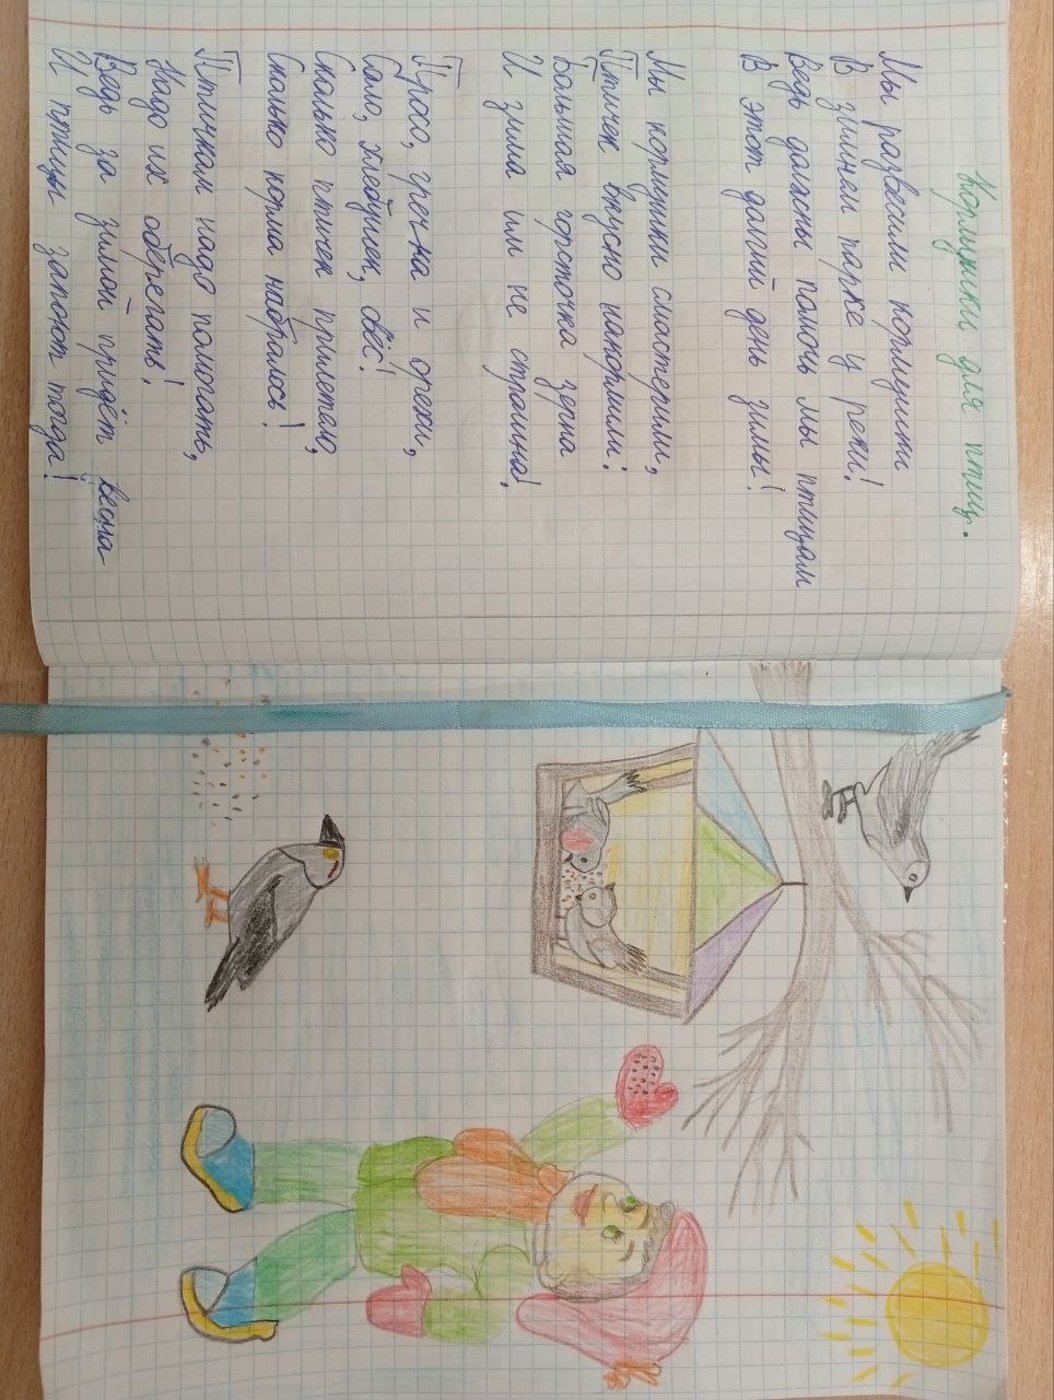 Кормушки для птиц.
Мы развесили кормушки
В зимнем парке у реки!
Ведь должны помочь мы птицам
В этот долгий день зимы!
Мы кормушки смастерили,
Птичек вкусно накормили:
Большая горсточка зерна
И зима им не страшна!
Просо, гречка и орехи,
Сало, хлебушек, овёс!
Сколько птичек прилетало,
Сколько корма набралось!
Птичкам надо помогать,
Надо их оберегать!
Ведь за зимой придёт весна
И птицы запоют тогда!